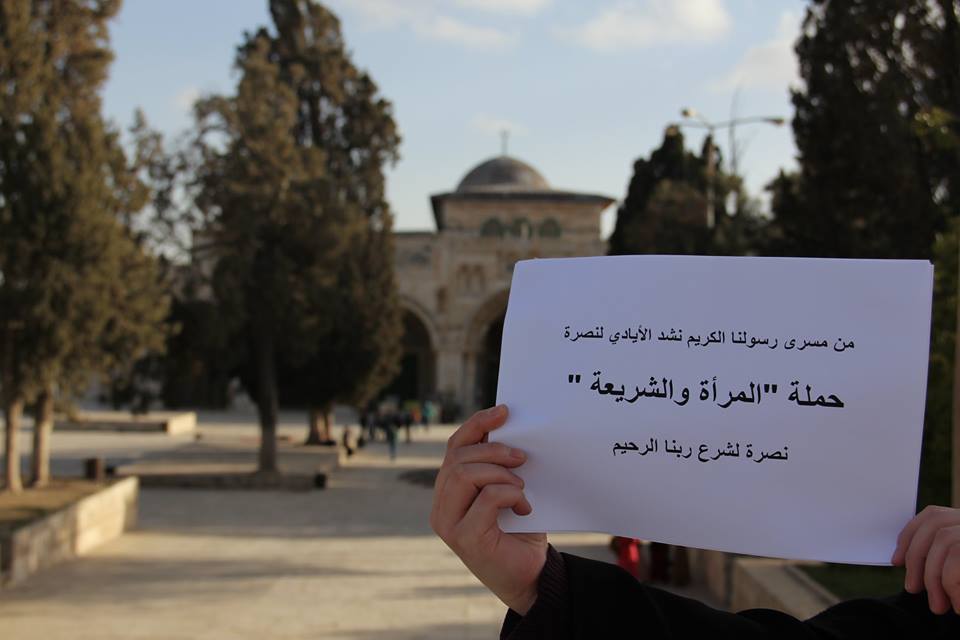 من مسرى رسولنا الكريم نشد الأيادي لنصرة
حملة "المرأة والشريعة "
نصرة لشرع ربنا الرحيم